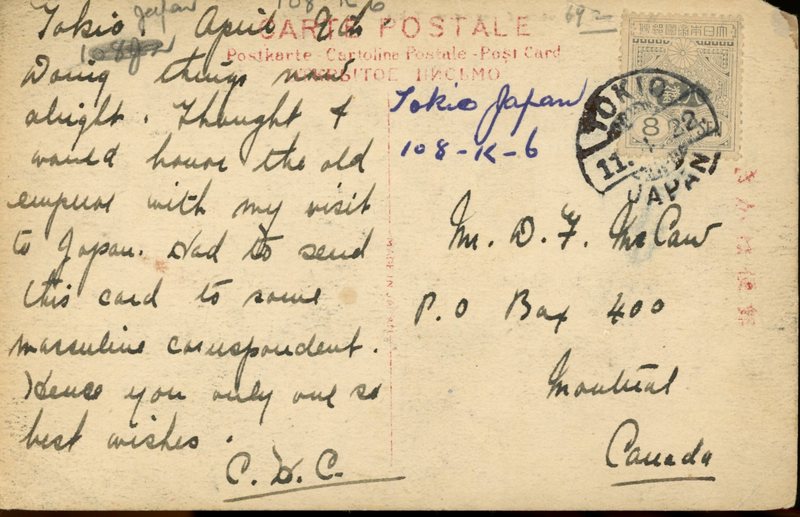 Tokio Japan April 9th
108-K-6
CARTE POSTALE
Postkarte - Cartolina Postale - Post Card
69
Doing things now
alright. Thought I
would honor the old
empire with my visit
to Japan. Had to send
this card to some
masculine correspondent.
Hence you only one so
best wishes.
C. H. C.
Tokio Japan
108-K-6
TOKIO
8
11. 22
JAPAN
Mr. D. F. McCaw
P.O Box 400
Montreal
Canada